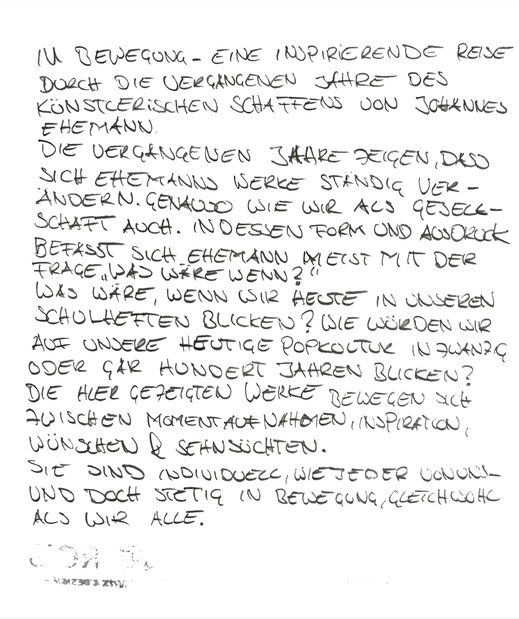 IN BEWEGUNG – EINE INSPIRIERENDE REISE
DURCH DIE VERGANGENEN JAHRE DES
KÜNSTLERISCHEN SCHAFFENS VON JOHANNES
EHEMANN.
DIE VERGANGENEN JAHRE ZEIGEN, DASS
SICH EHEMANNS WERKE STÄNDIG VER-
ÄNDERN. GENAUSO WIE WIR ALS GESELL-
SCHAFT AUCH. IN DESSEN FORM UND AUSDRUCK
BEFASST SICH EHEMANN MEIST MIT DER
FRAGE „WAS WÄRE WENN?“
WAS WÄRE, WENN WIR HEUTE IN UNSEREN
SCHULHEFTEN BLICKEN? WIE WÜRDEN WIR
AUF UNSERE HEUTIGE POPKULTUR IN ZWANZIG
ODER GAR HUNDERT JAHREN BLICKEN?
DIE HIER GEZEIGTEN WERKE BEWEGEN SICH
ZWISCHEN MOMENTAUFNAHMEN, INSPIRATION,
WÜNSCHEN & SEHNSÜCHTEN.
SIE SIND INDIVIDUELL, WIE JEDER VON UNS –
UND DOCH STETIG IN BEWEGUNG, GLEICHWOHL
ALS WIR ALLE.